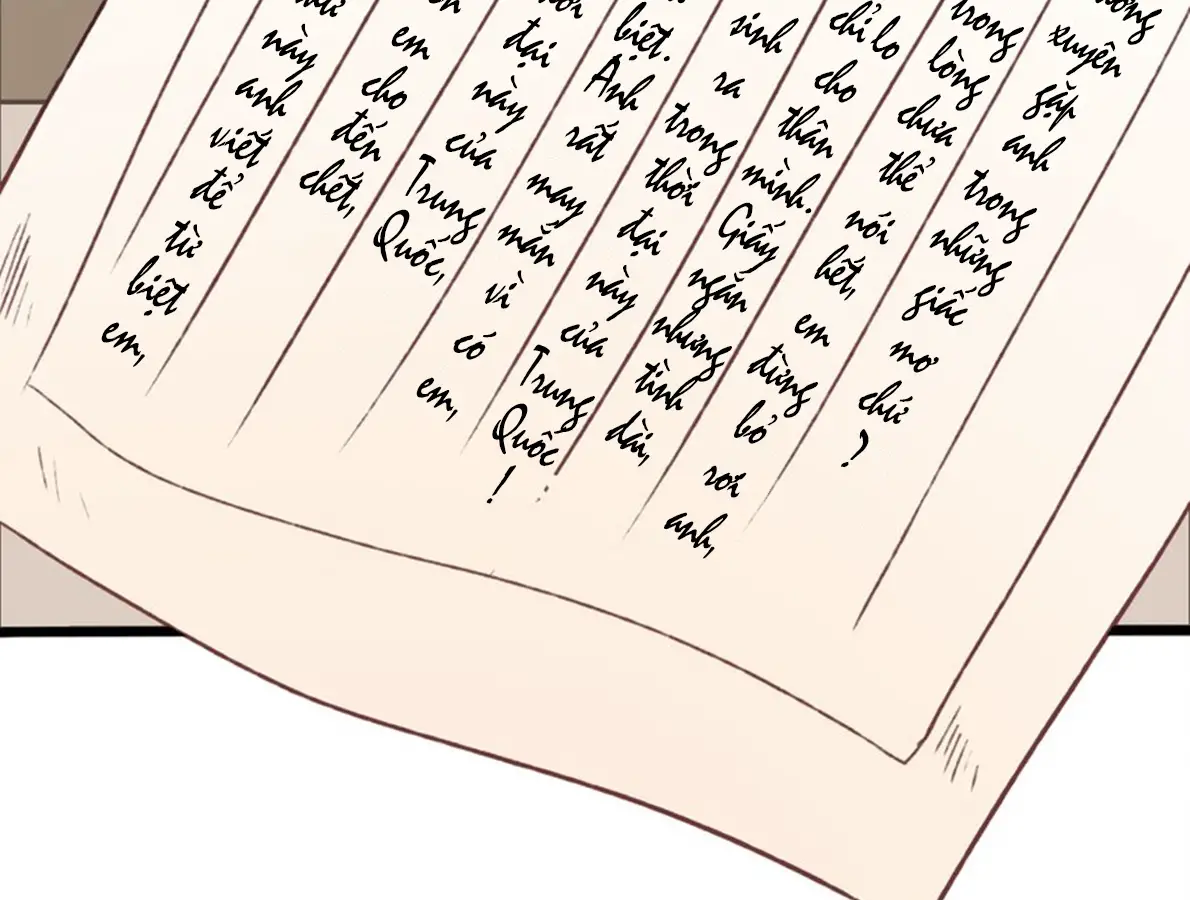 này anh viết để từ biệt em,
em cho đến chết,
đại này của Trung Quốc,
biệt. Anh rất may mắn vì có em,
sinh ra trong thời đại này của Trung Quốc!
chỉ lo cho thân mình. Giấy ngắn nhưng tình dài,
trong lòng chưa thể nói hết, em đừng bỏ rơi anh,
xuyên gặp anh trong những giấc mơ chứ?